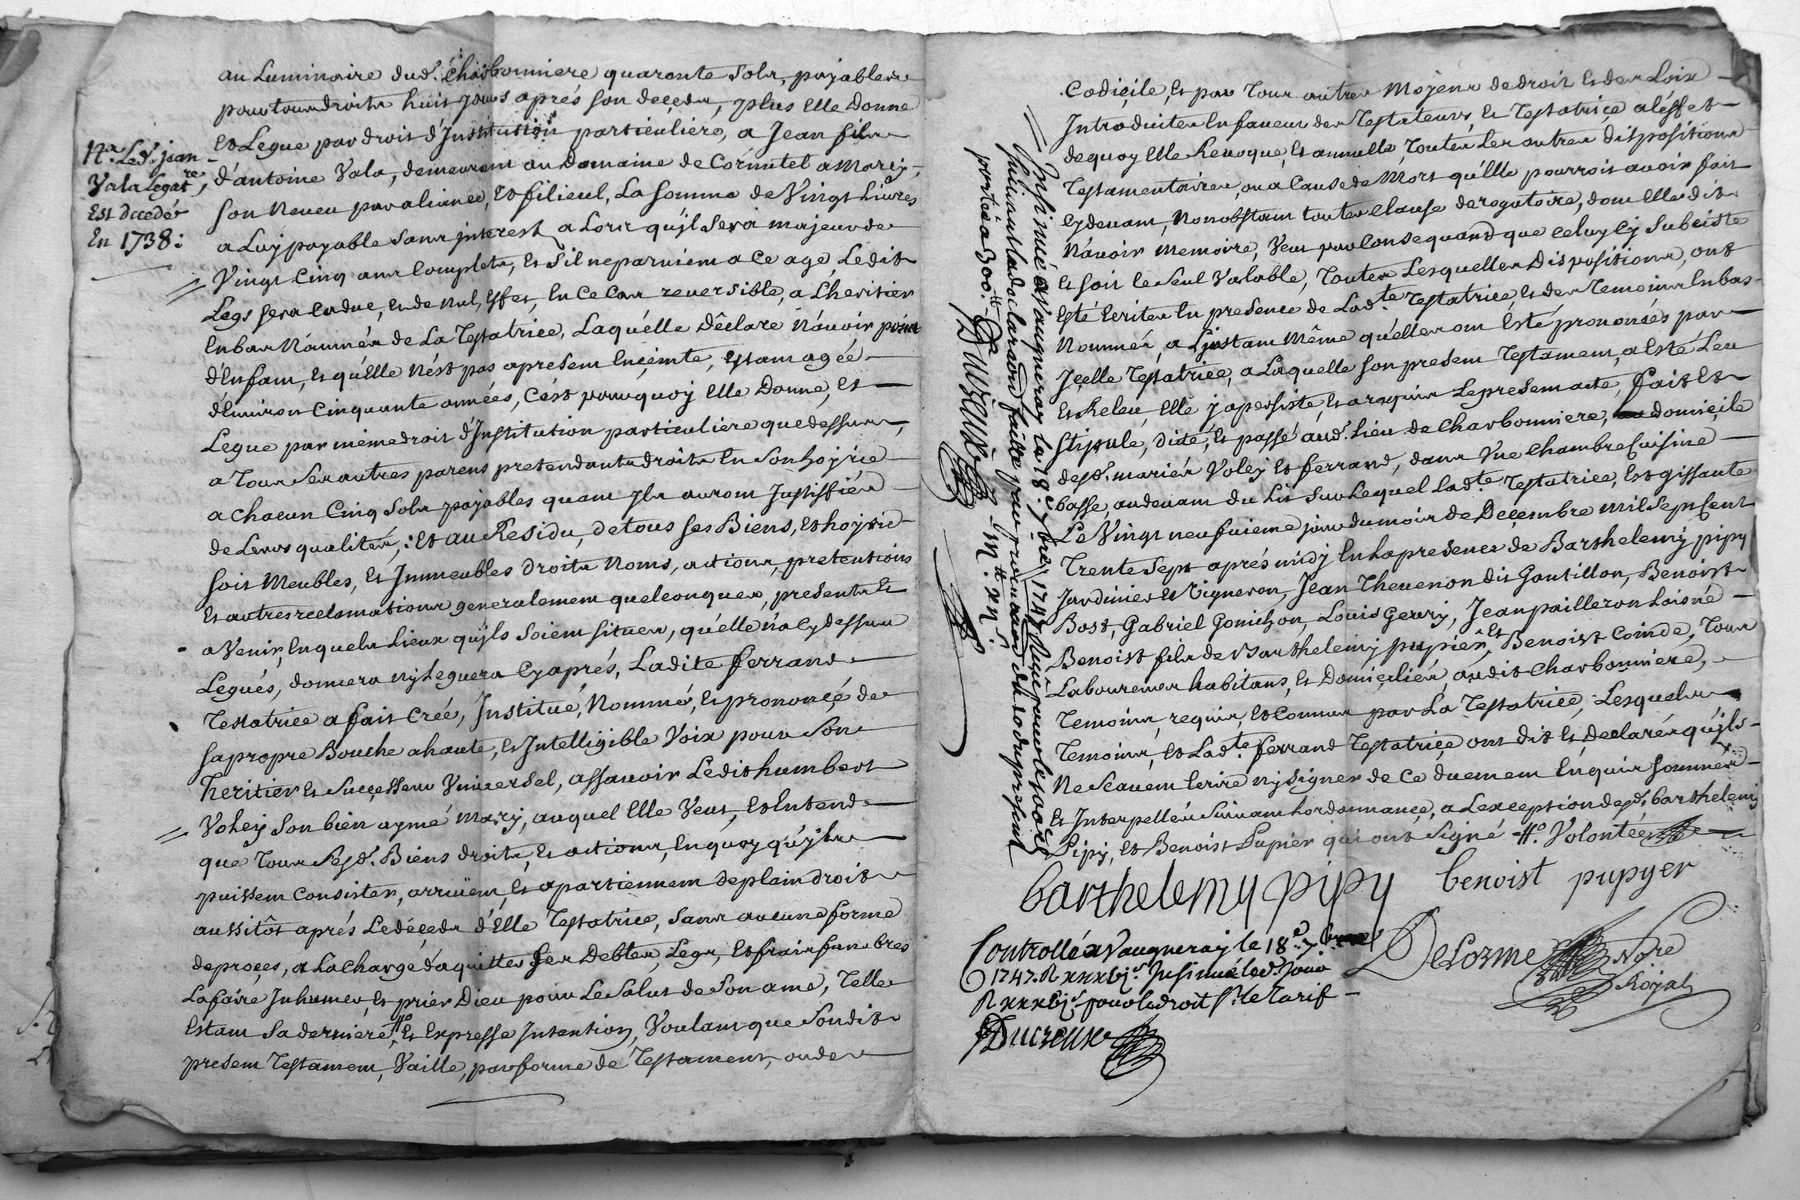 au Luminaire dud. Charbonniere quarante Sols, payables
pour tous droits huit jours aprés son deçeds, plus Elle donne
Et Legue par droit d'Institution particuliere, a Jean fils
d'antoine Vala, demeurant au Domaine de Cornutel a Marcy,
Son Neveu par aliance, Et filieul, La somme de Vingt Livres
a Luy payable sans interest, a Lors qu'il Sera majeur de
Vingt Cinq ans Complets, Et S'il ne parvient a Ce age, Ledit
Legs sera Caduc, Et de Nul Effet, En Ce Cas reversible, a L'heritier
En bas Nommée de La Testatrice, Laquélle Déclare N'avoir point
d'Enfant, Et qu'Elle N'ést pas apresent Enceinte, Estant agée
d'Environ Cinquante années, C'ést pourquoy Elle Donne, Et
Legue par méme droit d'Institution particuliere que dessus,
a Tous Ses autres parens pretendants droits En Son hoyrie
a Chacun Cinq Sols payables quant Ils auront Justiffiér
de Leurs qualitéz; Et au Residu, de tous ses Biens, Et hoyrie
soit Meubles, Et Immeubles droits Noms, actions, pretentions
Et autres reclamations generalement quelconques, presents Et
a Venir, En quels Lieux qu'ils Soient situez, qu'elle n'a Cy dessus
Legués, donnera ny Leguera Cy aprés, Ladite ferrand
Testatrice a fait Créé, Institué, Nommé, Et prononcé de
sa propre Bouche a haute, Et Intelligible Voix pour Son
heritier Et Successeur Universel, assavoir Ledit humbert
Voley Son bien aymé Mary, auquel Elle Veut, Et Entend
que Tous Sesd. Biens droits, Et actions, En quoy qu'ils
puissent Consister, arrivent, Et apartiennent de plain droit
aussitôt aprés Le décçeds d'Elle Testatrice, Sans aucune forme
de procçes, a La Charge d'aquitter Ses Debtes, Legs, Et frais funebres
La faire Inhumer, Et prier Dieu pour Le Salut de Son ame, Telle
Estant Sa derniere, Et Expresse Intention, Voulant que Sondit
present Testament, Vaille, par forme de Testament, ou de
Na. Led. jean
Vala Legatre,
Est Decedé
En 1738:
Codiçile, Et par Tous autres Moyens de droit Et des Loix
Introduites En faveur des Testateurs, Et Testatrice a L'éffet
de quoy Elle Revoque, Et annulle, Toutes Les autres dispositions
Testamentaires, ou a Cause de Mort qu'Elle pourroit avoir fait
Cy devant, Nonobstant toutes Clause derogatoire, dont Elle dit
N'avoir memoire, Veut par Consequand que Celuy Cy Subciste
Et soit le Seul Valable, Toutes Lesquelles Dispositions, ont
Esté Ecrites En presence de Ladte Testatrice, Et des Temoins En bas
Nommés, a L'jnstant Même qu'elles ont Esté prononcés par
Jçelle Testatrice, a Laquelle son present Testament, a Esté Leu
Et Releu, Elle y a persisté, Et a requis Le present acte, fait Et
Stipule, dicté, Et passé aud. Lieu de Charbonniere, domiçile
desd. mariér Voley Et ferrand, dans Une Chambre Cuisine
basse, au devant du Lit sur Lequel Ladte Testatrice, Est gissante
Le Vingt neufvieme jour du mois de Deçembre mil Sept Cent
Trente Sept aprés midy En La presence de Barthelemy pipy
Jardinier Et Vigneron, Jean Thevenon dit Gontillon, Benoist
Bost, Gabriel Gonichon, Louis Geury, Jean pailleron Laisné
Benoist fils de Barthelemy pupiér, Et Benoist Coinde, Tous
Laboureurs habitans, Et Domiçiliér audit Charbonniere,
Temoins, requis, Et Connus par La Testatrice, Lesquels
Temoins, Et Ladte ferrand Testatriçe ont dit Et Declarér qu'jls
Ne Scavent Ecrire ny signer de Ce duement Enquis Sommér
Et Interpellér Suivant Lordonnance, a Lexception desd. barthelemy
Pipy, Et Benoist Pupiér qui ont Signé Volontée
barthelemy pipy
benoist pupyer
Delorme Nore
Royal
Controllé a Vaugneray le 18e. 7bre
1747. R xxxvj s. Insinué led. Jour
R xxxvj s. pour le droit S. le Tarif
Ducreux
Insinué a Vaugneray le 18e. 7bre 1747 Reçu pour le 100e d.
suivant la declaration faite par
portée a 300 tt. Ducreux